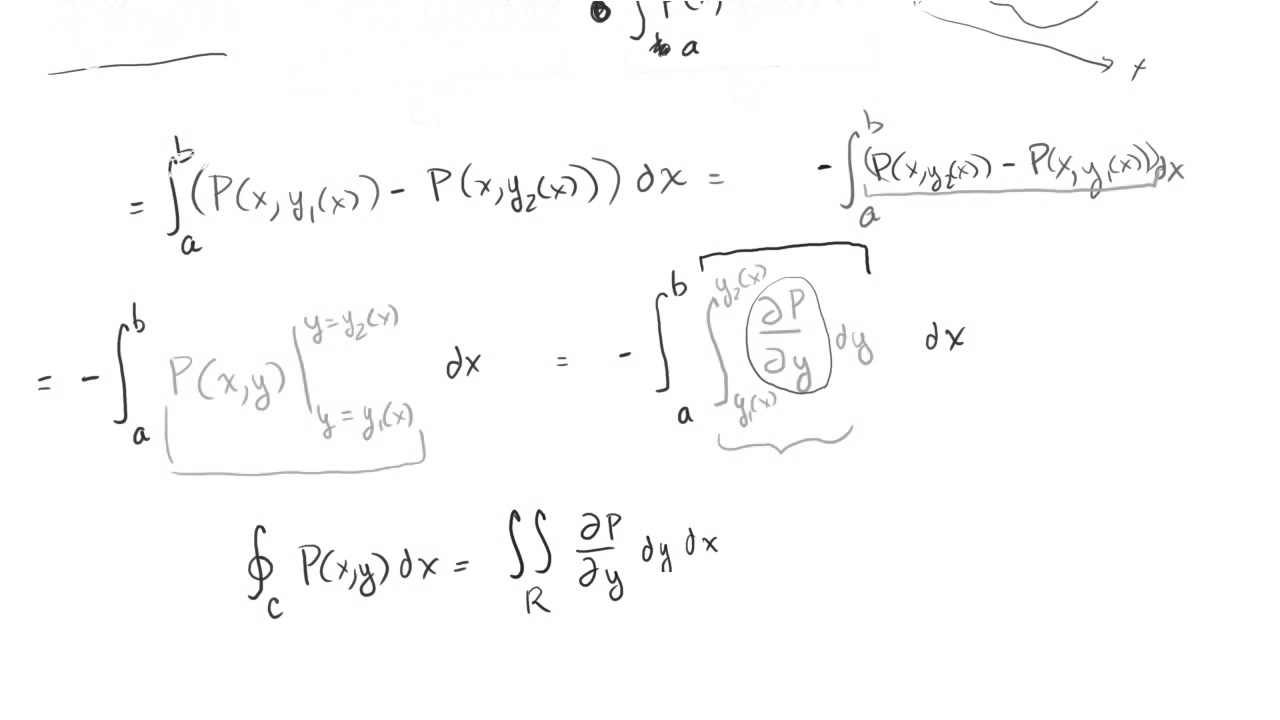 ∫ a
x
= ∫_a^b (P(x, y₁(x)) - P(x, y₂(x))) dx = - ∫_a^b (P(x, y₂(x)) - P(x, y₁(x))) dx
= - ∫_a^b P(x,y) |_{y = y₁(x)}^{y = y₂(x)} dx = - ∫_a^b ∫_{y₁(x)}^{y₂(x)} ∂P/∂y dy dx
∮_C P(x,y) dx = ∬_R ∂P/∂y dy dx